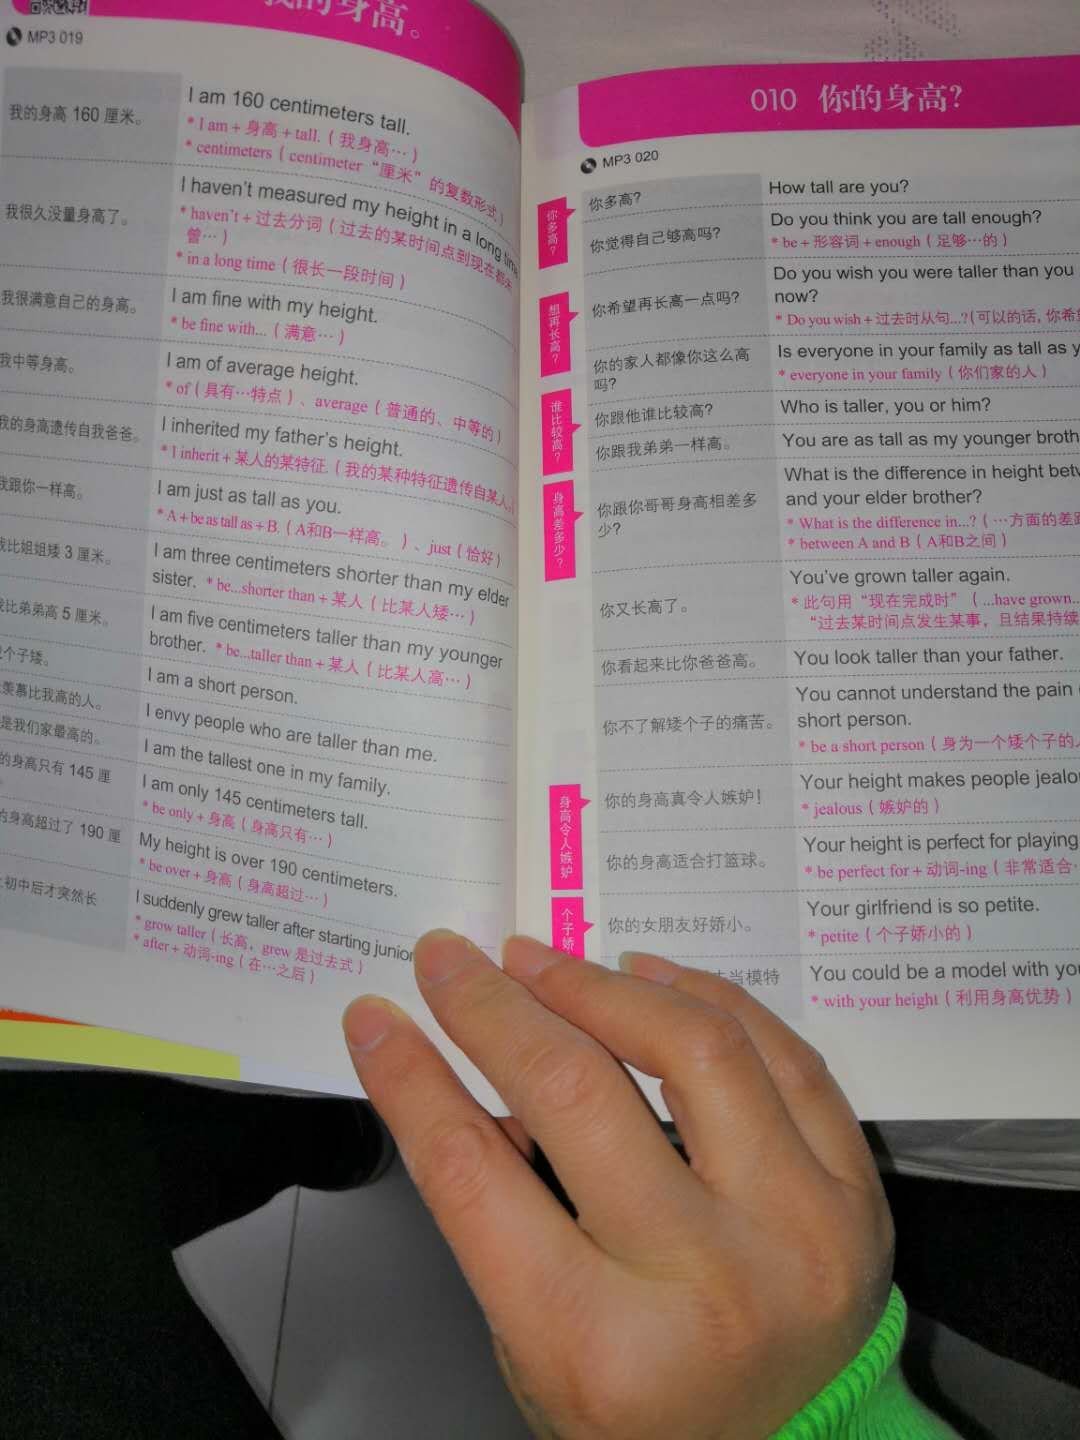 的身高。
MP3 019
我的身高 160 厘米。
I am 160 centimeters tall.
* I am + 身高 + tall.（我身高…）
* centimeters（centimeter “厘米” 的复数形式）
我很久没量身高了。
I haven't measured my height in a long time
* haven't + 过去分词（过去的某时间点到现在都未
曾…）
* in a long time（很长一段时间）
我很满意自己的身高。
I am fine with my height.
* be fine with...（满意…）
我中等身高。
I am of average height.
* of（具有…特点）、average（普通的、中等的）
我的身高遗传自我爸爸。
I inherited my father's height.
* I inherit + 某人的某特征.（我的某种特征遗传自某人。
我跟你一样高。
I am just as tall as you.
* A + be as tall as + B.（A和B一样高。）、just（恰好）
我比姐姐矮 3 厘米。
I am three centimeters shorter than my elder
sister. * be...shorter than + 某人（比某人矮…）
我比弟弟高 5 厘米。
I am five centimeters taller than my younger
brother. * be...taller than + 某人（比某人高…）
个子矮。
I am a short person.
羡慕比我高的人。
I envy people who are taller than me.
是我们家最高的。
I am the tallest one in my family.
的身高只有 145 厘
I am only 145 centimeters tall.
* be only + 身高（身高只有…）
的身高超过了 190 厘
My height is over 190 centimeters.
* be over + 身高（身高超过…）
初中后才突然长
I suddenly grew taller after starting junior
* grow taller（长高，grew 是过去式）
* after + 动词-ing（在…之后）
010 你的身高?
MP3 020
你多高?
你多高?
How tall are you?
你觉得自己够高吗?
Do you think you are tall enough?
* be + 形容词 + enough（足够…的）
想再长高?
你希望再长高一点吗?
Do you wish you were taller than you
now?
* Do you wish + 过去时从句...?（可以的话，你希
你的家人都像你这么高
吗?
Is everyone in your family as tall as y
* everyone in your family（你们家的人）
谁比较高?
你跟他谁比较高?
Who is taller, you or him?
你跟我弟弟一样高。
You are as tall as my younger broth
身高差多少?
你跟你哥哥身高相差多
少?
What is the difference in height betw
and your elder brother?
* What is the difference in...?（…方面的差距
* between A and B（A和B之间）
你又长高了。
You've grown taller again.
* 此句用 “现在完成时”（...have grown...
“过去某时间点发生某事，且结果持续
你看起来比你爸爸高。
You look taller than your father.
你不了解矮个子的痛苦。
You cannot understand the pain
short person.
* be a short person（身为一个矮个子的人
身高令人嫉妒
你的身高真令人嫉妒!
Your height makes people jealou
* jealous（嫉妒的）
你的身高适合打篮球。
Your height is perfect for playing
* be perfect for + 动词-ing（非常适合…
个子娇
你的女朋友好娇小。
Your girlfriend is so petite.
* petite（个子娇小的）
去当模特
You could be a model with you
* with your height（利用身高优势）